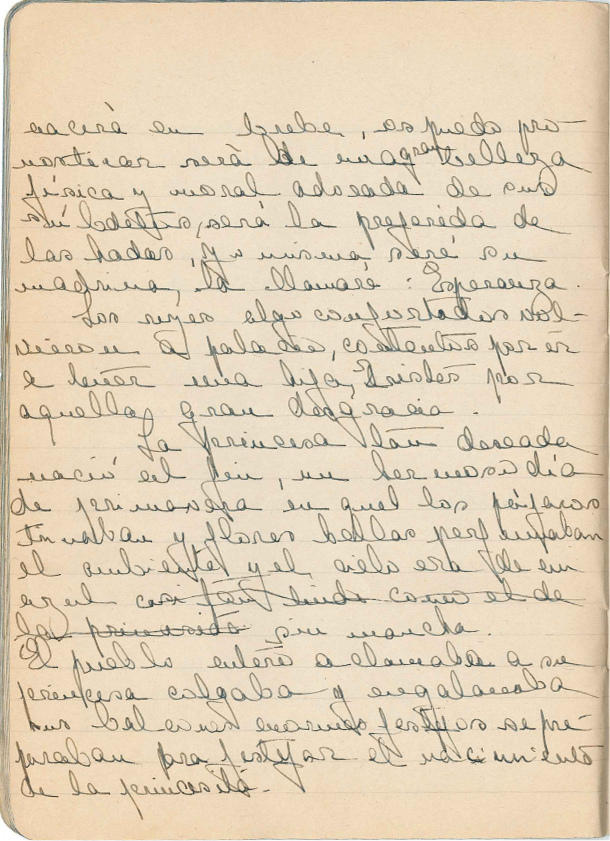 nacerá en breve, os puedo pro-
nosticar será de una gran belleza
física y moral adorada de sus
súbditos, será la preferida de
las hadas, yo misma seré su
madrina, la llamaré: Esperanza.
Los reyes algo confortados vol-
vieron a palacio, contentos por ir
a tener una hija, tristes por
aquella gran desgracia.
La princesa tan deseada
nació al fin, un hermoso día
de primavera en quel los pájaros
trinaban y flores bellas perfumaban
el ambiente y el cielo era de un
azul casi tan lindo como el de
la princesita sin mancha.
El pueblo entero aclamaba a su
princesa colgaba y engalanaba
sus balcones enormes festejos se pre-
paraban para festejar el nacimiento
de la princesita.